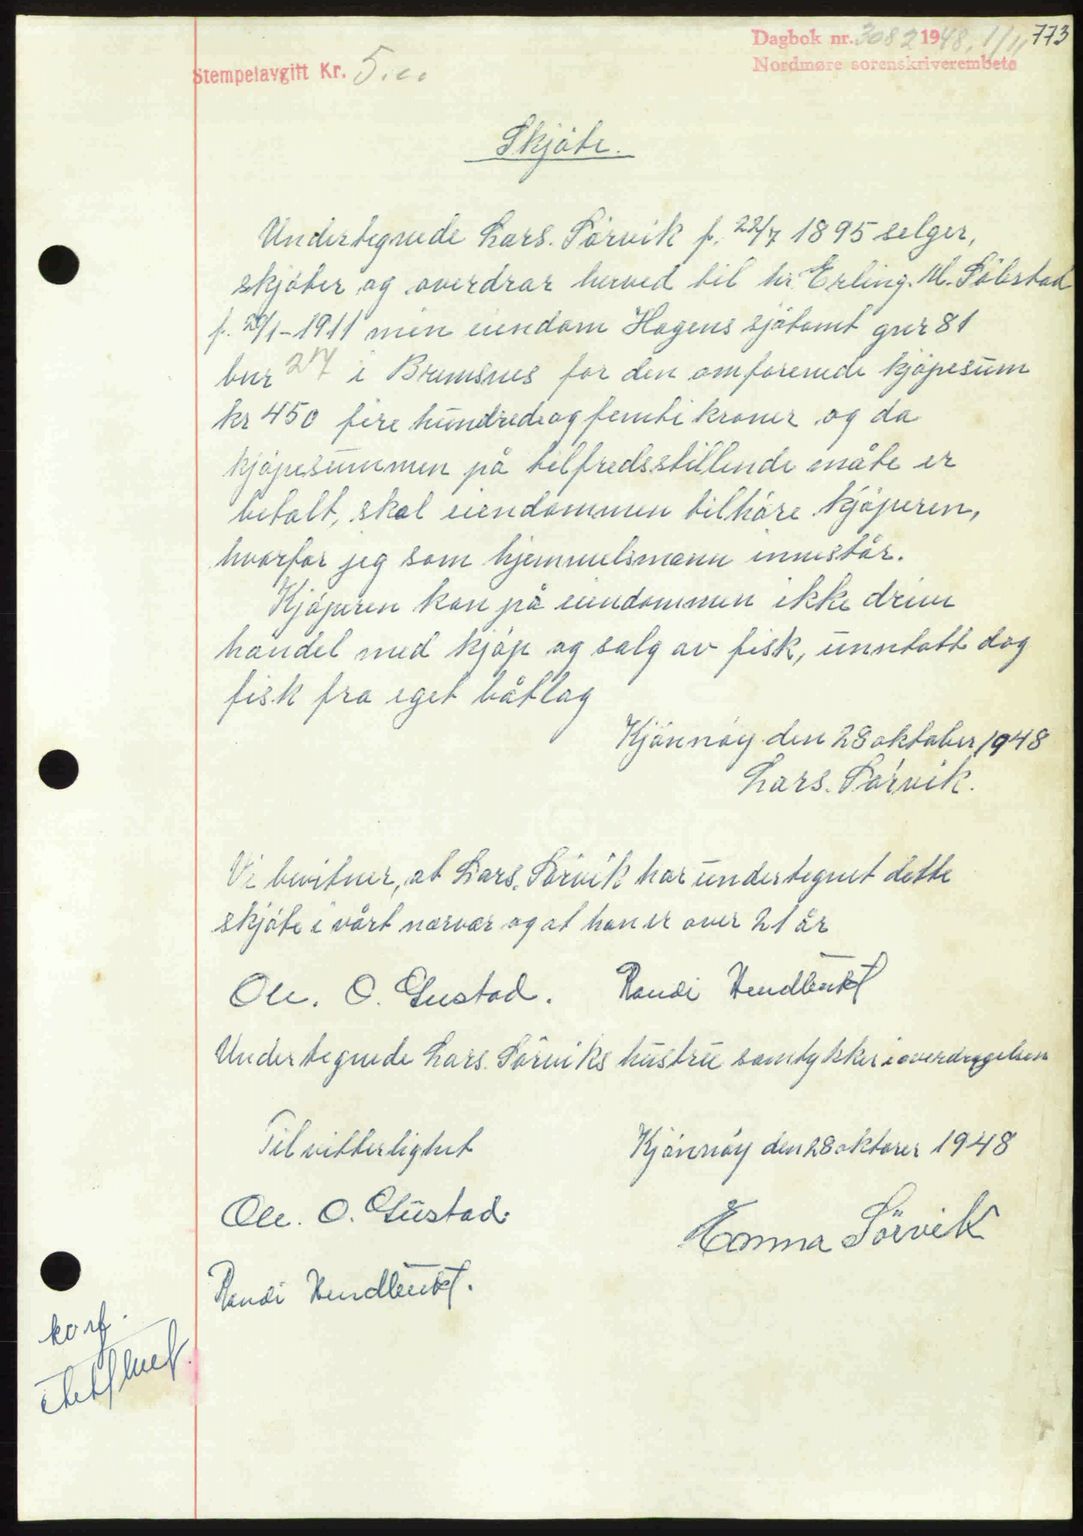 Dagbok nr. 3082 1948, 1/11 773
Nordmøre sorenskriverembete
Stempelavgift Kr. 5.00
Skjöte.
Undertegnede Lars. Sörvik f. 22/7 1895 selger,
skjöter og overdrar herved til hr. Erling. M.
f. 1911 min eiendom Hagens sjötomt gnr 81
bnr 217 i Bremsnes for den omforenede kjöpesum
kr 450 fire hundredeog femti kroner og da
kjöpesummen på tilfredsstillende måte er
betalt, skal eiendommen tilhöre kjöperen,
hvorfor jeg som hjemmelsmann innestår.
Kjöperen kan på eiendommen ikke drive
handel med kjöp og salg av fisk, unntatt dog
fisk fra eget båtlag
Kjönnöy den 28 oktober 1948
Lars. Sörvik.
Vi bevitner, at Lars. Sörvik har undertegnet dette
skjöte i vårt nærvær og at han er over 21 år
Ole. O. Gustad. Randi
Undertegnede Lars. Sörviks hustru samtykker i overdragelsen
Til vitterlighet
Kjönnöy den 28 oktorer 1948
Ole. O. Gustad.
Emma Sörvik
Randi
korf.